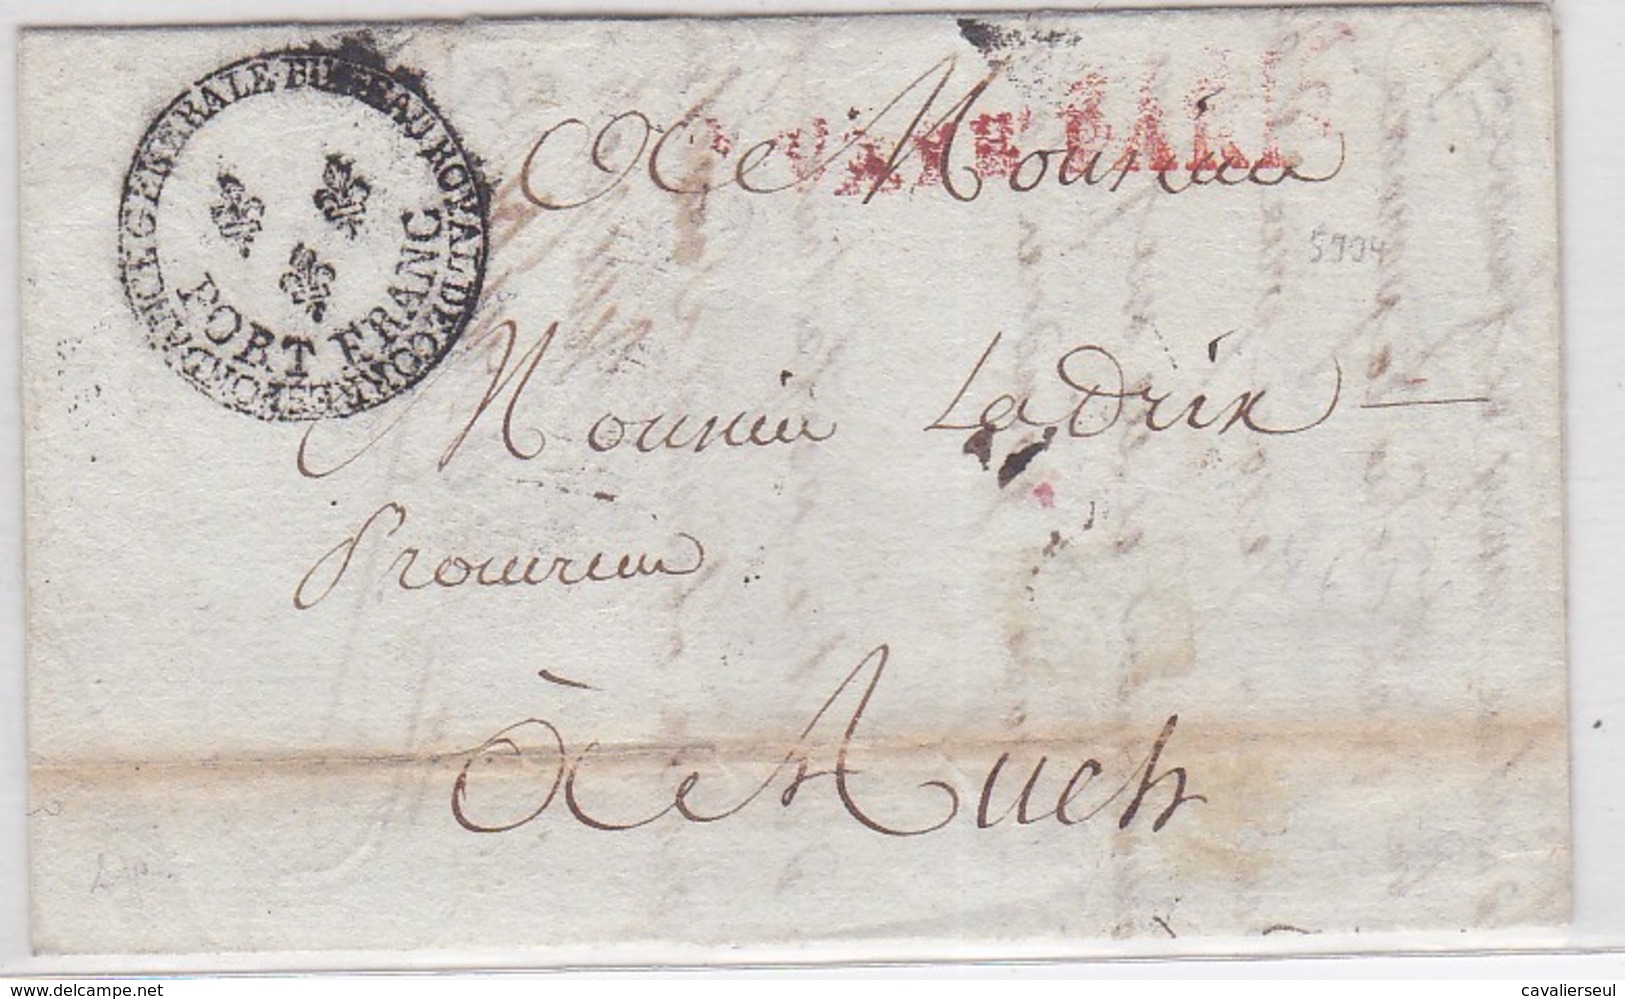 BUREAU ROYAL DE CORRESPONDANCE GENERALE
PORT FRANC
A Monsieur
5994
Monsieur Ladrix
Procureur
à Auch
www.delcampe.net
cavalierseul